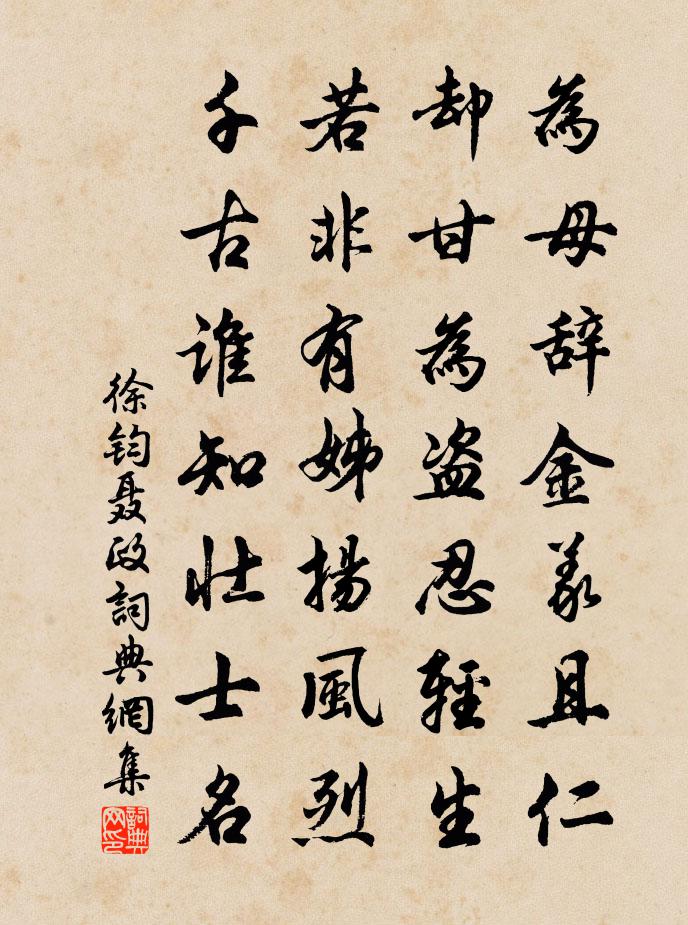 為母辞金義且仁
却甘為盗忍輕生
若非有姊揚風烈
千古誰知壯士名
徐鈞聂政詞典網集
詞典網印